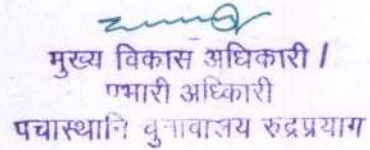 मुख्य विकास अधिकारी /
प्रभारी अधिकारी
पंचास्थानि चुनावालय रुद्रप्रयाग